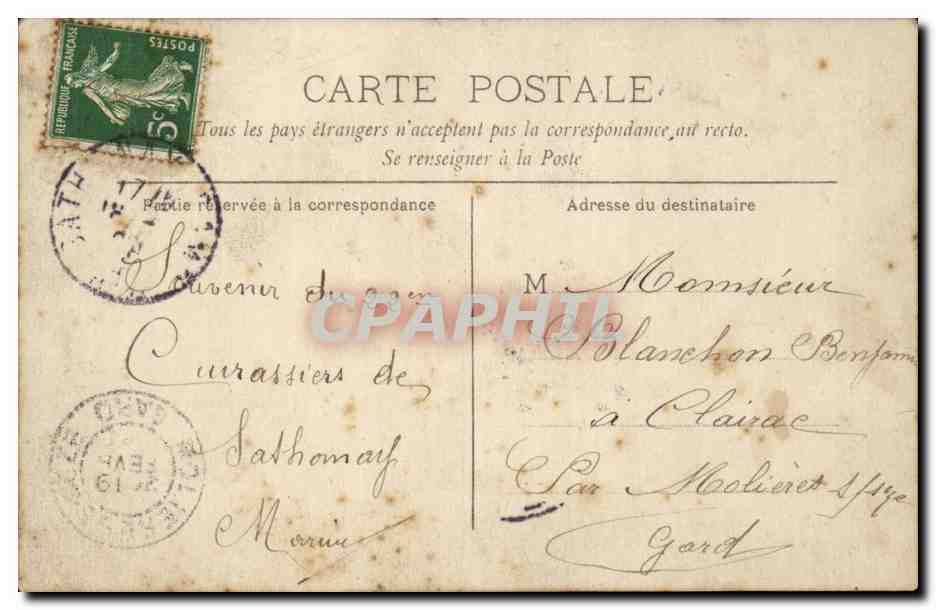 REPUBLIQUE FRANÇAISE
POSTES
5c
CARTE POSTALE
Tous les pays étrangers n'acceptent pas la correspondance au recto.
Se renseigner à la Poste
Partie réservée à la correspondance
Souvenir du
Cuirassiers de
Sathonay
Marius
Adresse du destinataire
M Monsieur
Blanchon Benjamin
à Clairac
Par Molières s/
Gard
CPAPHIL
SATH
17
GARD
19
FEVR